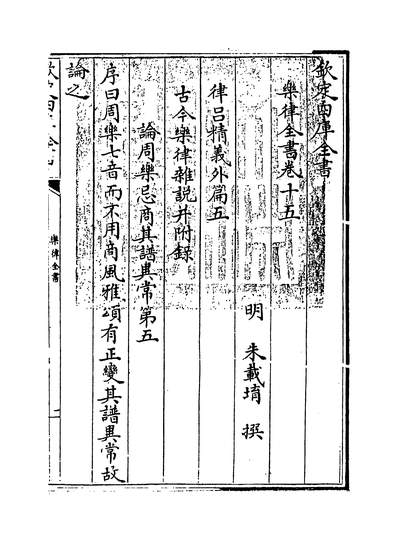 欽定四庫全書
樂律全書卷十五
明 朱載堉 撰
律呂精義外篇五
古今樂律雜説并附録
論周樂忌商其譜異常第五
序曰周樂七音而不用商風雅頌有正變其譜異常故
論之
樂律全書